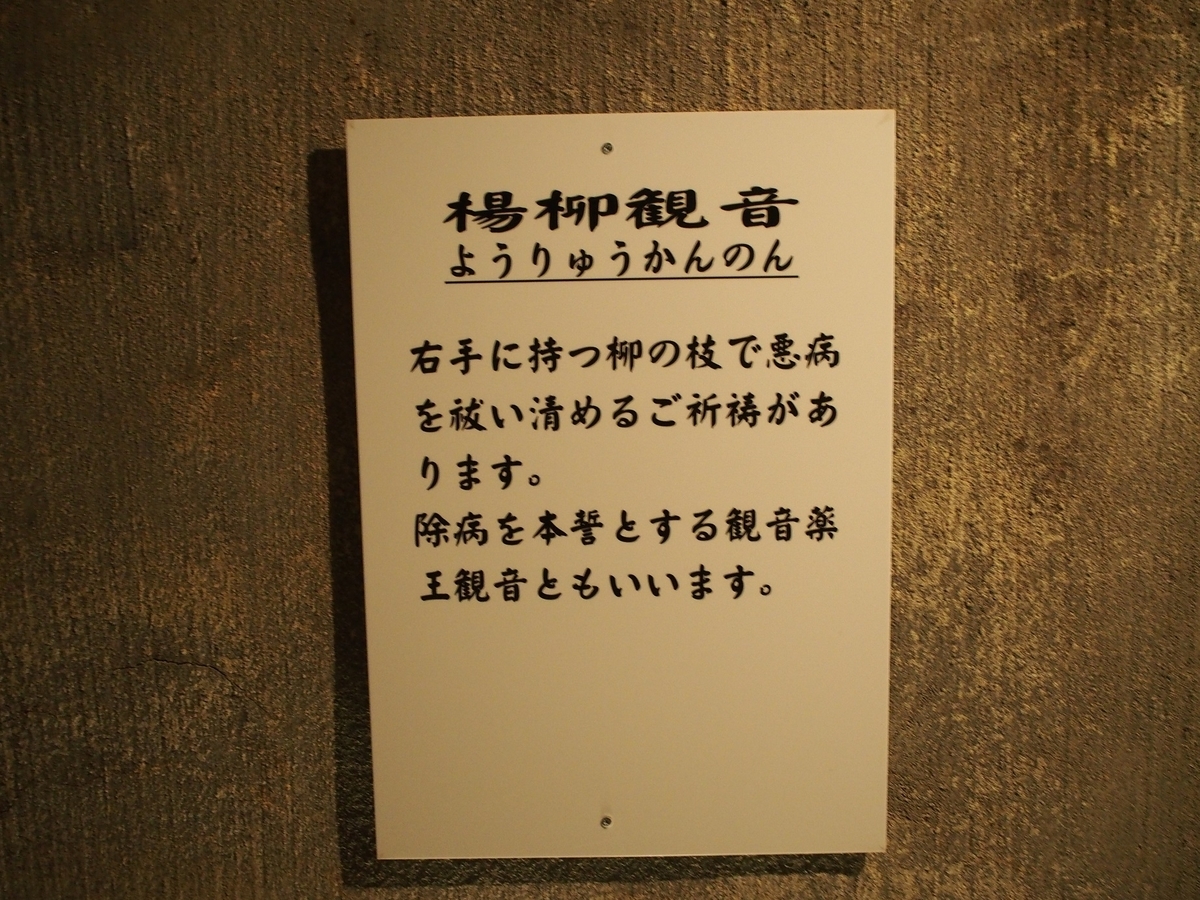 楊柳観音
ようりゅうかんのん
右手に持つ柳の枝で悪病
を祓い清めるご祈祷があ
ります。
除病を本誓とする観音薬
王観音ともいいます。